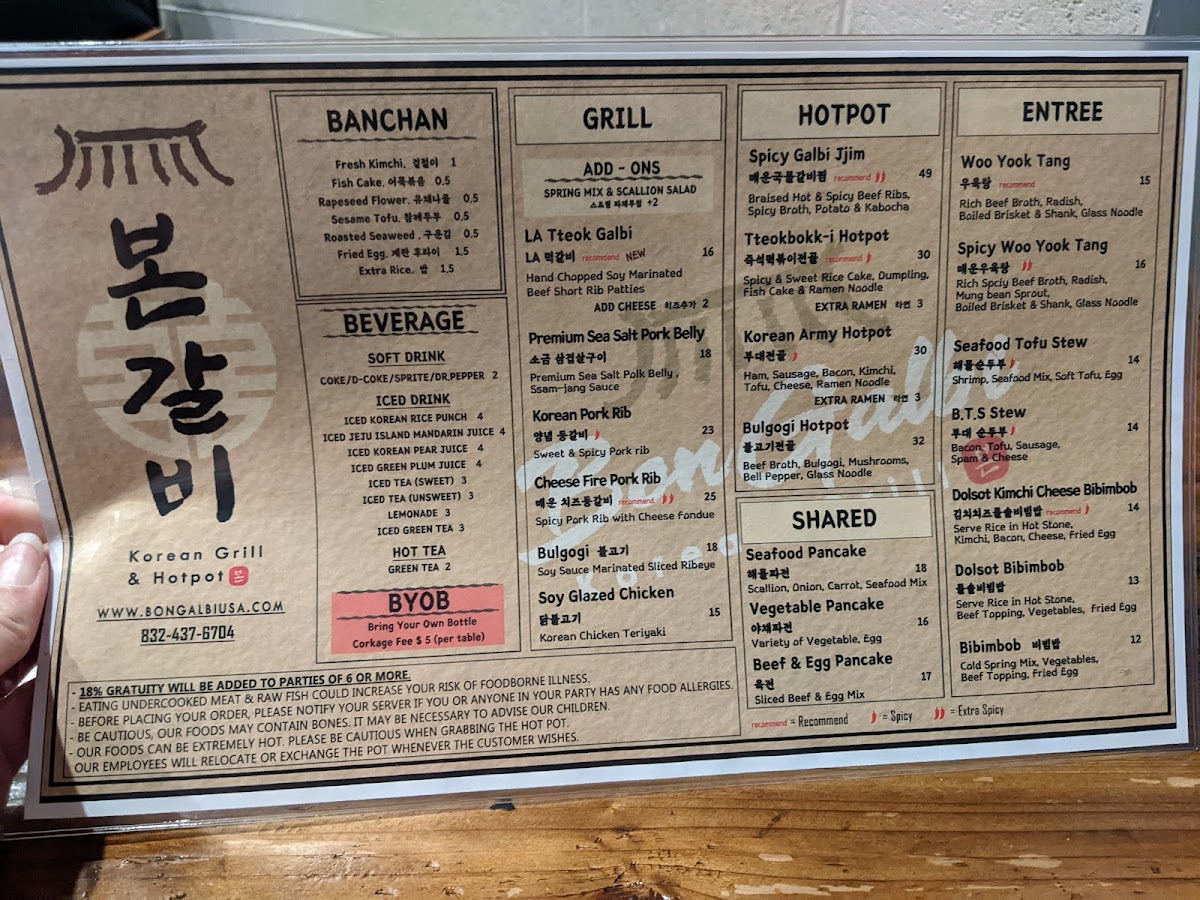 본
갈
비
Korean Grill
& Hotpot
WWW.BONGALBIUSA.COM
832-437-6704
BANCHAN
Fresh Kimchi, 겉절이 1
Fish Cake, 어묵볶음 0.5
Rapeseed Flower, 유채나물 0.5
Sesame Tofu, 참깨두부 0.5
Roasted Seaweed, 구운김 0.5
Fried Egg, 계란 후라이 1.5
Extra Rice, 밥 1.5
BEVERAGE
SOFT DRINK
COKE/D-COKE/SPRITE/DR.PEPPER 2
ICED DRINK
ICED KOREAN RICE PUNCH 4
ICED JEJU ISLAND MANDARIN JUICE 4
ICED KOREAN PEAR JUICE 4
ICED GREEN PLUM JUICE 4
ICED TEA (SWEET) 3
ICED TEA (UNSWEET) 3
LEMONADE 3
ICED GREEN TEA 3
HOT TEA
GREEN TEA 2
BYOB
Bring Your Own Bottle
Corkage Fee $ 5 (per table)
GRILL
ADD - ONS
SPRING MIX & SCALLION SALAD
스프링 파채무침 +2
LA Tteok Galbi
LA 떡갈비 recommend NEW 16
Hand Chopped Soy Marinated
Beef Short Rib Patties
ADD CHEESE 치즈추가 2
Premium Sea Salt Pork Belly
소금 삼겹살구이 18
Premium Sea Salt Polk Belly ,
Ssam-jang Sauce
Korean Pork Rib
양념 등갈비 23
Sweet & Spicy Pork rib
Cheese Fire Pork Rib
매운 치즈등갈비 recommend 25
Spicy Pork Rib with Cheese fondue
Bulgogi 불고기 18
Soy Sauce Marinated Sliced Ribeye
Soy Glazed Chicken
닭불고기 15
Korean Chicken Teriyaki
HOTPOT
Spicy Galbi Jjim
매운국물갈비찜 recommend 49
Braised Hot & Spicy Beef Ribs,
Spicy Broth, Potato & Kabocha
Tteokbokk-i Hotpot
즉석떡볶이전골 recommend 30
Spicy & Sweet Rice Cake, Dumpling,
Fish Cake & Ramen Noodle
EXTRA RAMEN 라면 3
Korean Army Hotpot
부대전골 30
Ham, Sausage, Bacon, Kimchi,
Tofu, Cheese, Ramen Noodle
EXTRA RAMEN 라면 3
Bulgogi Hotpot
불고기전골 32
Beef Broth, Bulgogi, Mushrooms,
Bell Pepper, Glass Noodle
SHARED
Seafood Pancake
해물파전 18
Scallion, Onion, Carrot, Seafood Mix
Vegetable Pancake
야채파전 16
Variety of Vegetable, Egg
Beef & Egg Pancake
육전 17
Sliced Beef & Egg Mix
recommend = Recommend = Spicy = Extra Spicy
ENTREE
Woo Yook Tang
우육탕 recommend 15
Rich Beef Broth, Radish,
Boiled Brisket & Shank, Glass Noodle
Spicy Woo Yook Tang
매운우육탕 16
Rich Spciy Beef Broth, Radish,
Mung bean Sprout,
Boiled Brisket & Shank, Glass Noodle
Seafood Tofu Stew
해물순두부 14
Shrimp, Seafood Mix, Soft Tofu, Egg
B.T.S Stew
부대 순두부 14
Bacon, Tofu, Sausage,
Spam & Cheese
Dolsot Kimchi Cheese Bibimbob
김치치즈돌솥비빔밥 recommend 14
Serve Rice in Hot Stone,
Kimchi, Bacon, Cheese, Fried Egg
Dolsot Bibimbob
돌솥비빔밥 13
Serve Rice in Hot Stone,
Beef Topping, Vegetables, Fried Egg
Bibimbob 비빔밥 12
Cold Spring Mix, Vegetables,
Beef Topping, Fried Egg
- 18% GRATUITY WILL BE ADDED TO PARTIES OF 6 OR MORE.
- EATING UNDERCOOKED MEAT & RAW FISH COULD INCREASE YOUR RISK OF FOODBORNE ILLNESS.
- BEFORE PLACING YOUR ORDER, PLEASE NOTIFY YOUR SERVER IF YOU OR ANYONE IN YOUR PARTY HAS ANY FOOD ALLERGIES.
- BE CAUTIOUS, OUR FOODS MAY CONTAIN BONES. IT MAY BE NECESSARY TO ADVISE OUR CHILDREN.
- OUR FOODS CAN BE EXTREMELY HOT. PLEASE BE CAUTIOUS WHEN GRABBING THE HOT POT.
OUR EMPLOYEES WILL RELOCATE OR EXCHANGE THE POT WHENEVER THE CUSTOMER WISHES.